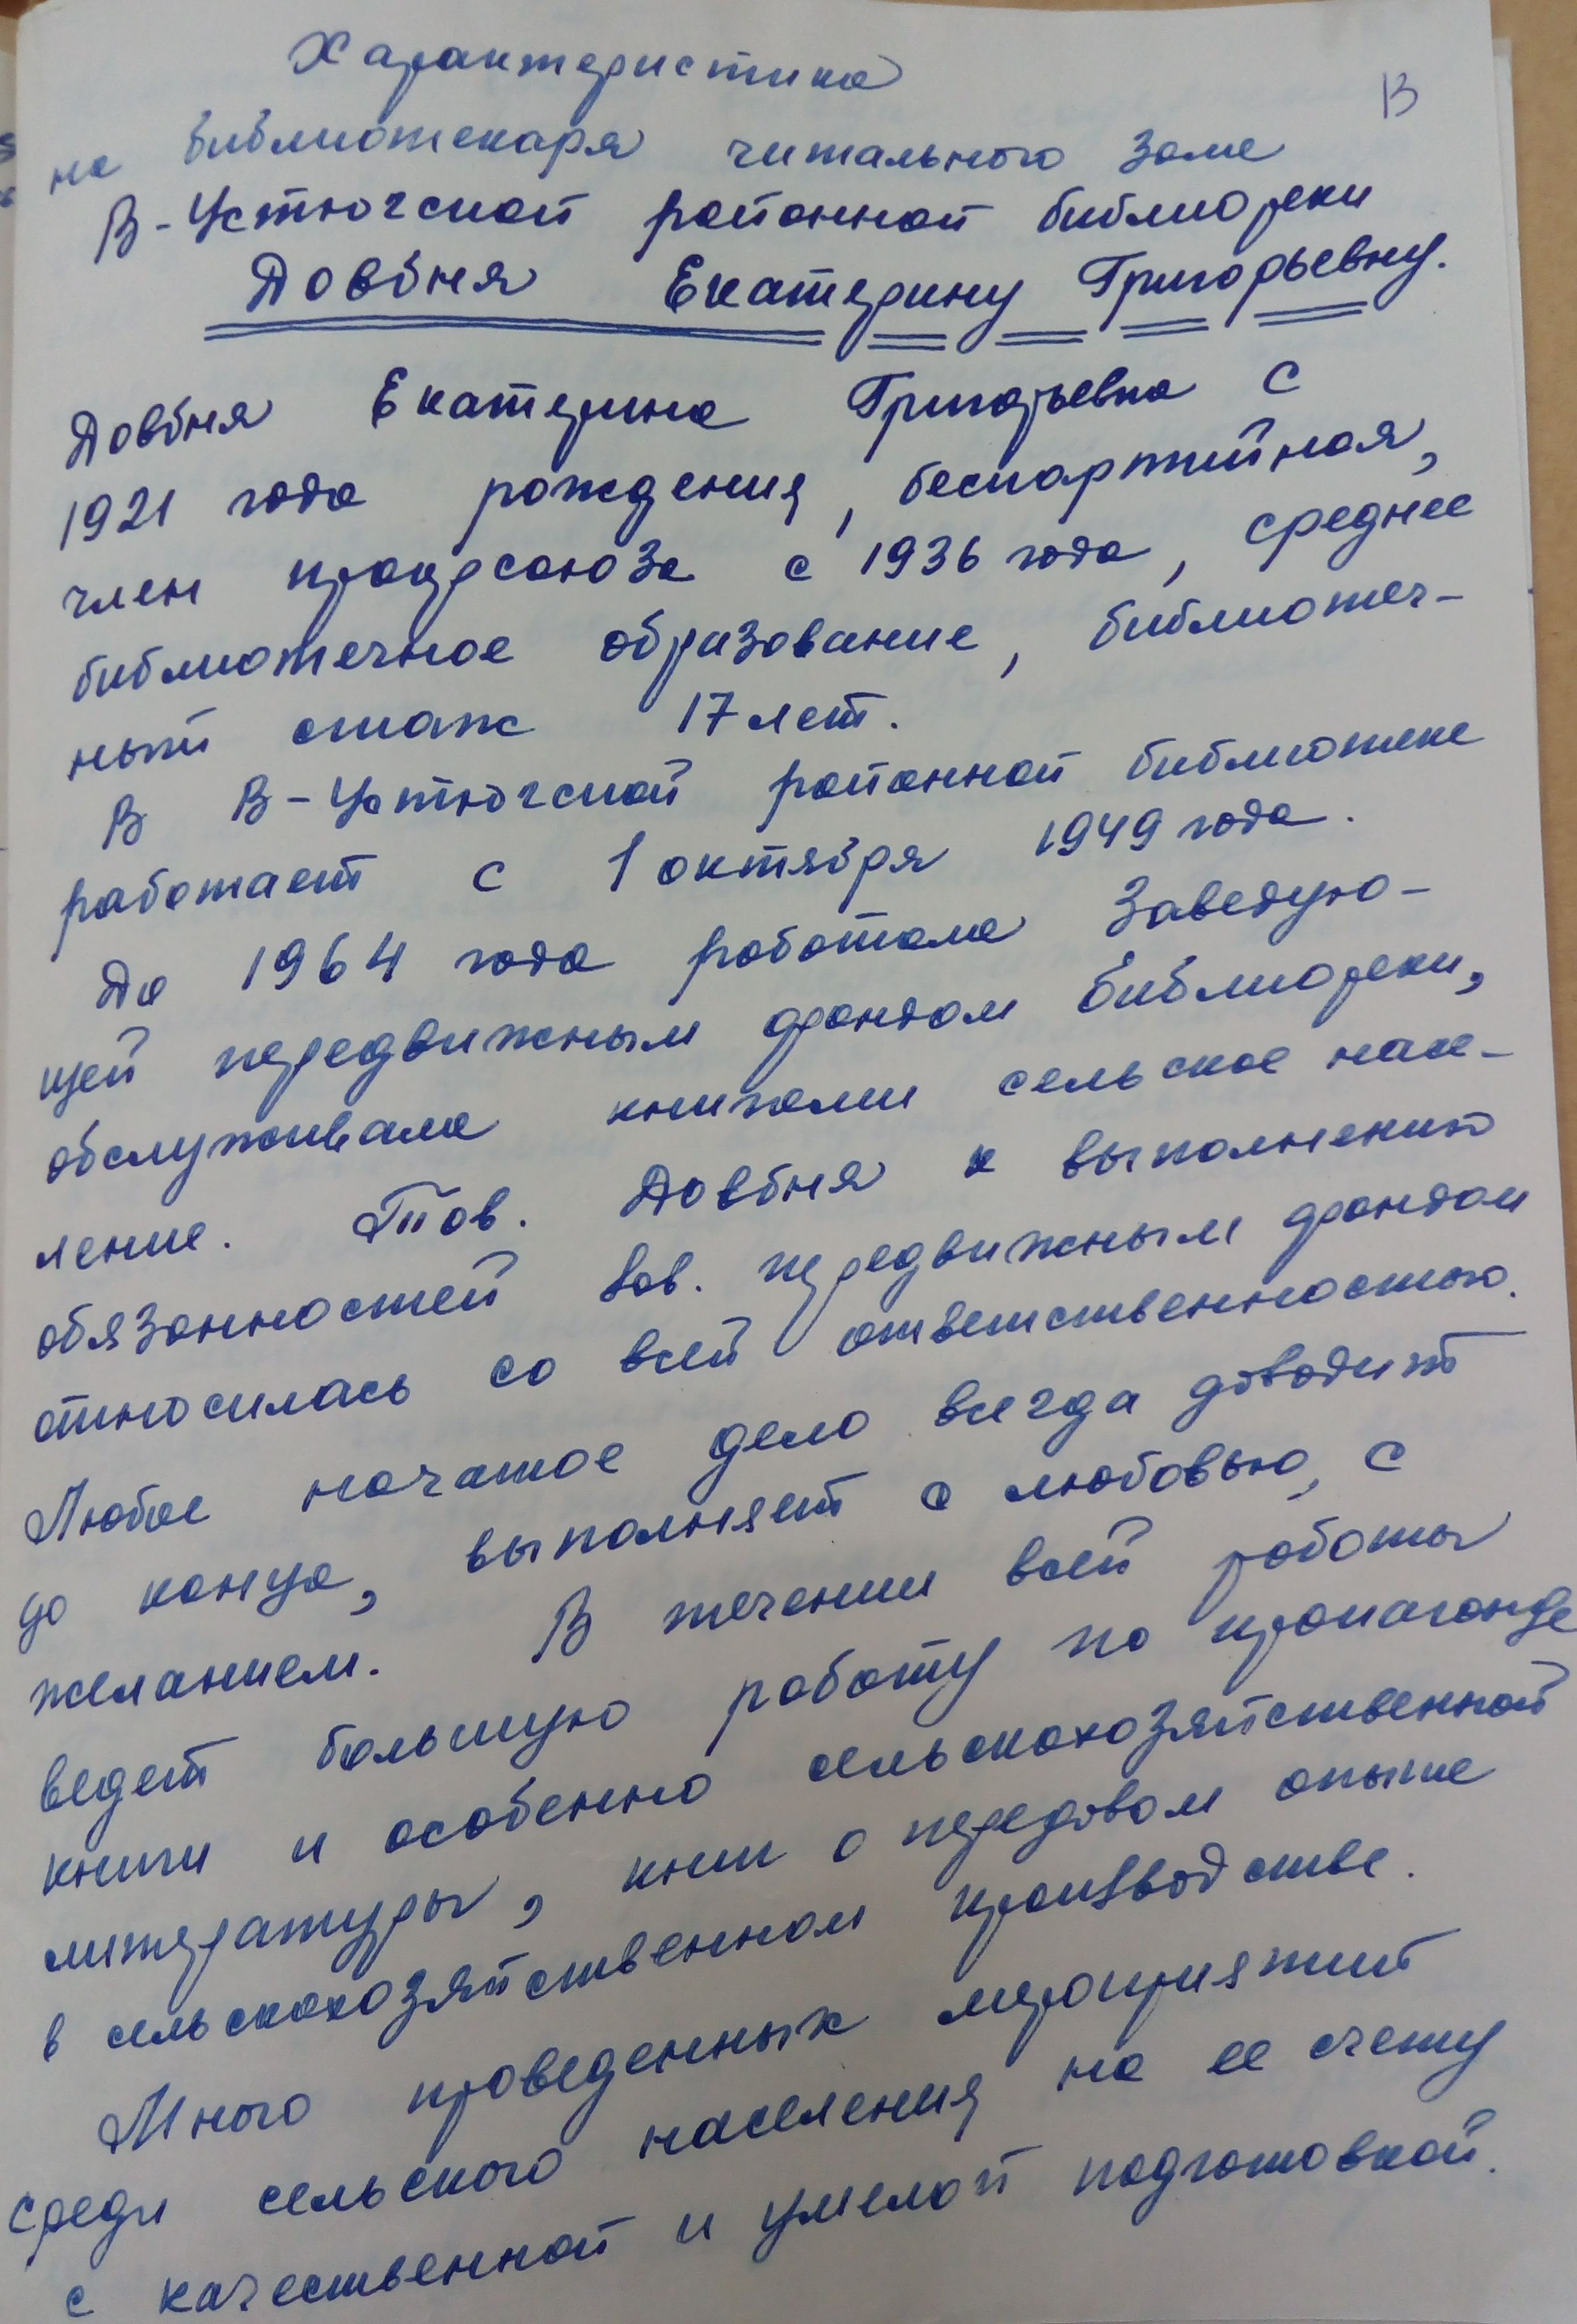 Характеристика
13
на библиотекаря читального зала
В-Устюгской районной библиотеки
Довбня Екатерину Григорьевну.
Довбня Екатерина Григорьевна с
1921 года рождения, беспартийная,
член профсоюза с 1936 года, среднее
библиотечное образование, библиотеч-
ный стаж 17 лет.
В В-Устюгской районной библиотеке
работает с 1 октября 1949 года.
До 1964 года работала заведую-
щей передвижным фондом библиотеки,
обслуживала книгами сельское насе-
ление. Тов. Довбня к выполнению
обязанностей зав. передвижным фондом
относилась со всей ответственностью.
Любое начатое дело всегда доводит
до конца, выполняет с любовью, с
желанием. В течении всей работы
ведет большую работу по пропаганде
книги и особенно сельскохозяйственной
литературы, книг о передовом опыте
в сельскохозяйственном производстве.
Много проведенных мероприятий
среди сельского населения на ее счету
с качественной и умелой подготовкой.